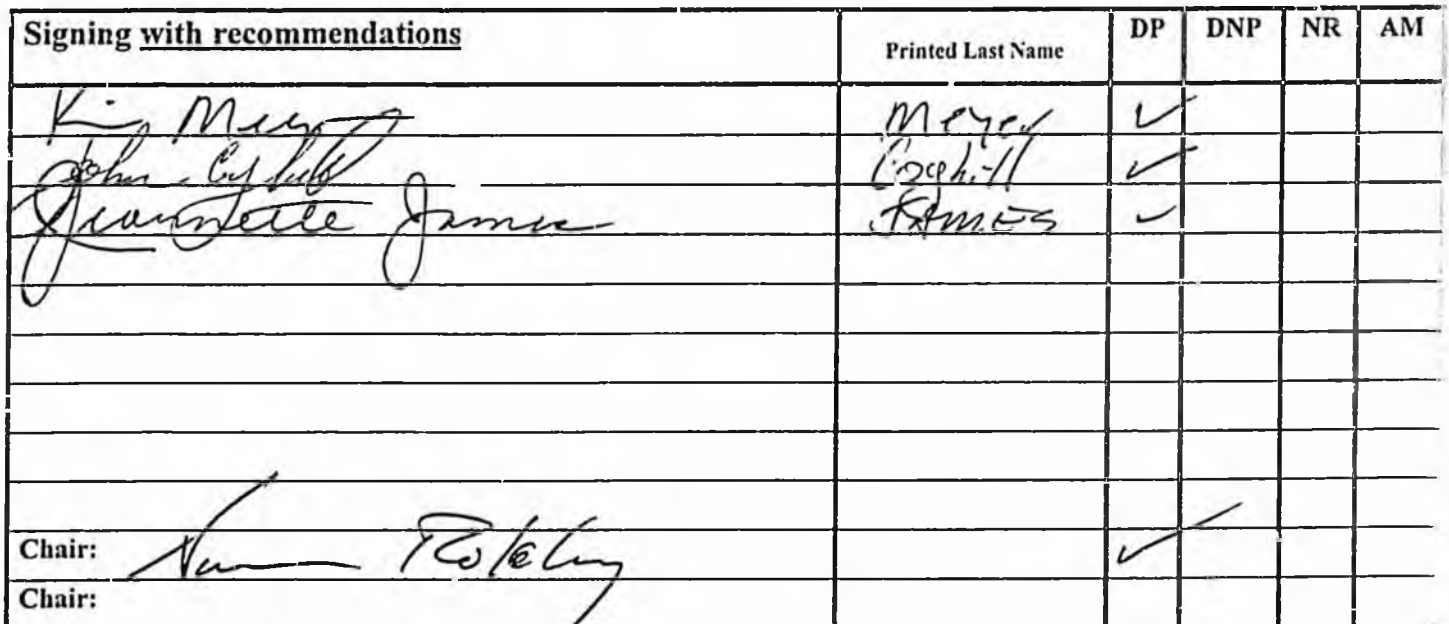 Signing with recommendations Printed Last Name DP DNP NR AM
Meyer ✓
John Coghill Coghill ✓
Jeannette James JAMES ✓
Chair: Norman Rokeberg ✓
Chair: